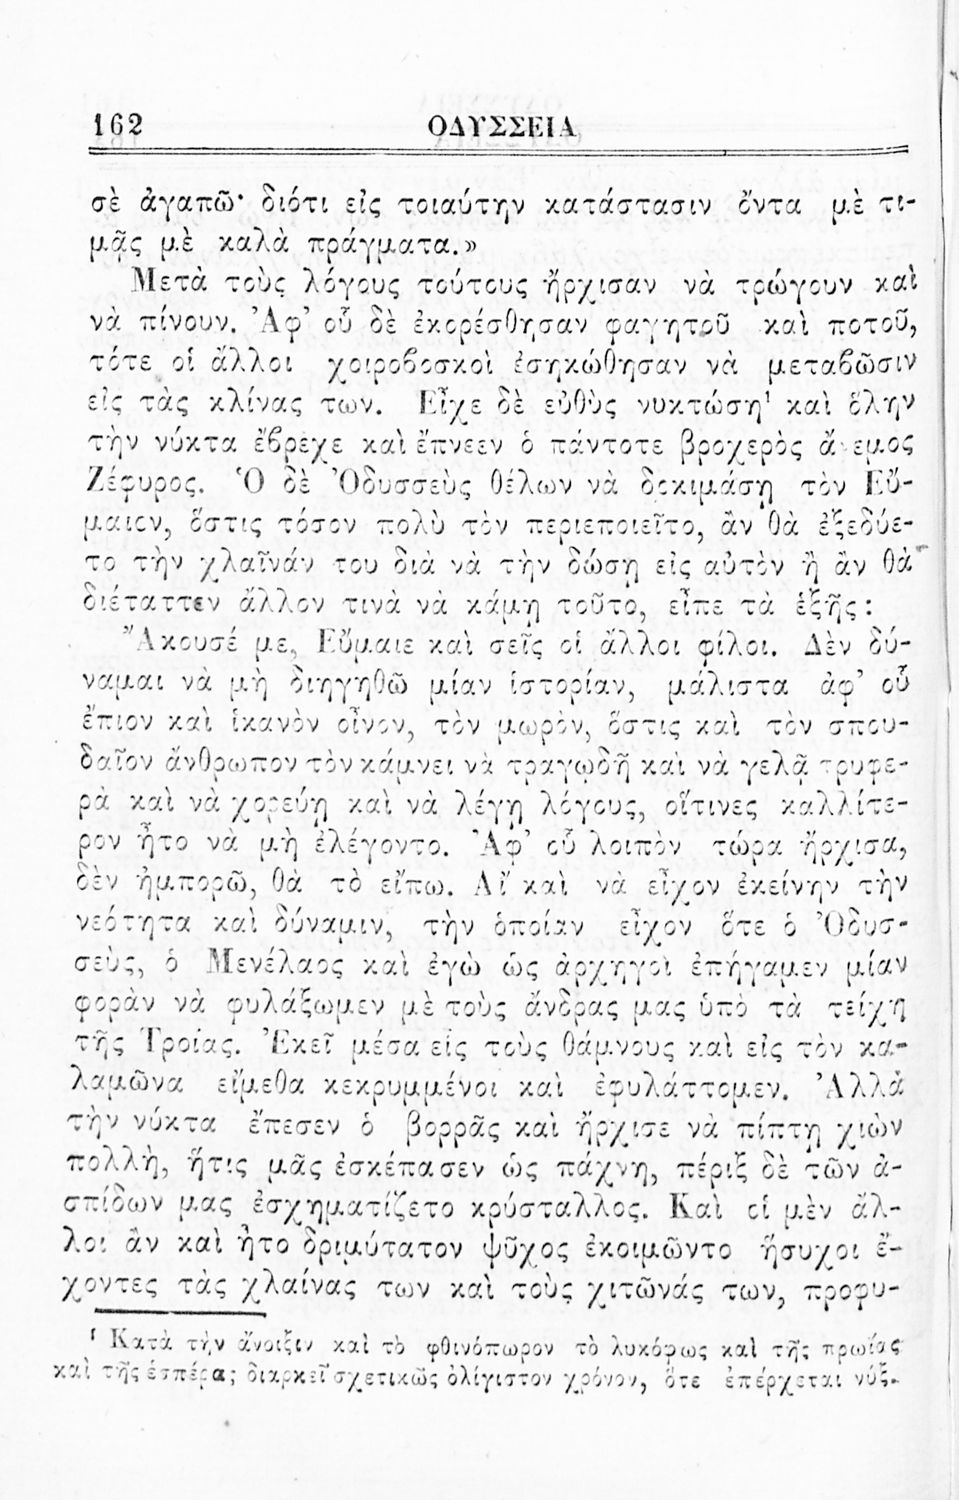 162 ΟΔΥΣΣΕΙΑ
σὲ ἀγαπῶ· διότι εἰς τοιαύτην κατάστασιν ὄντα μὲ τι-
μᾷς μὲ καλὰ πράγματα.»
Μετὰ τοὺς λόγους τούτους ἤρχισαν νὰ τρώγουν καὶ
νὰ πίνουν. Ἀφ’ οὗ δὲ ἐκορέσθησαν φαγητοῦ καὶ ποτοῦ,
τότε οἱ ἄλλοι χοιροβοσκοὶ ἐσηκώθησαν νὰ μεταβῶσιν
εἰς τὰς κλίνας των. Εἶχε δὲ εὐθὺς νυκτώσῃ¹ καὶ ὅλην
τὴν νύκτα ἔβρεχε καὶ ἔπνεεν ὁ πάντοτε βροχερὸς ἄνεμος
Ζέφυρος. Ὁ δὲ Ὀδυσσεὺς θέλων νὰ δοκιμάσῃ τὸν Εὔ-
μαιον, ὅστις τόσον πολὺ τὸν περιεποιεῖτο, ἂν θὰ ἐξεδύε-
το τὴν χλαῖνάν του διὰ νὰ τὴν δώσῃ εἰς αὐτὸν ἢ ἂν θὰ
διέταττεν ἄλλον τινὰ νὰ κάμῃ τοῦτο, εἶπε τὰ ἑξῆς:
Ἄκουσέ με, Εὔμαιε καὶ σεῖς οἱ ἄλλοι φίλοι. Δὲν δύ-
ναμαι νὰ μὴ διηγηθῶ μίαν ἱστορίαν, μάλιστα ἀφ’ οὗ
ἔπιον καὶ ἱκανὸν οἶνον, τὸν μωρὸν, ὅστις καὶ τὸν σπου-
δαῖον ἄνθρωπον τὸν κάμνει νὰ τραγῳδῇ καὶ νὰ γελᾷ τρυφε-
ρὰ καὶ νὰ χορεύῃ καὶ νὰ λέγῃ λόγους, οἵτινες καλλίτε-
ρον ἦτο νὰ μὴ ἐλέγοντο. Ἀφ’ οὗ λοιπὸν τώρα ἤρχισα,
δὲν ἠμπορῶ, θὰ τὸ εἴπω. Αἲ καὶ νὰ εἶχον ἐκείνην τὴν
νεότητα καὶ δύναμιν, τὴν ὁποίαν εἶχον ὅτε ὁ Ὀδυσ-
σεὺς, ὁ Μενέλαος καὶ ἐγὼ ὡς ἀρχηγοὶ ἐπήγαμεν μίαν
φορὰν νὰ φυλάξωμεν μὲ τοὺς ἄνδρας μας ὑπὸ τὰ τείχη
τῆς Τροίας. Ἐκεῖ μέσα εἰς τοὺς θάμνους καὶ εἰς τὸν κα-
λαμῶνα εἴμεθα κεκρυμμένοι καὶ ἐφυλάττομεν. Ἀλλὰ
τὴν νύκτα ἔπεσεν ὁ βορρᾶς καὶ ἤρχισε νὰ πίπτῃ χιὼν
πολλὴ, ἥτις μᾶς ἐσκέπασεν ὡς πάχνη, πέριξ δὲ τῶν ἀ-
σπίδων μας ἐσχηματίζετο κρύσταλλος. Καὶ οἱ μὲν ἄλ-
λοι ἂν καὶ ἦτο δριμύτατον ψῦχος ἐκοιμῶντο ἥσυχοι ἔ-
χοντες τὰς χλαίνας των καὶ τοὺς χιτῶνάς των, προφυ-
¹ Κατὰ τὴν ἄνοιξιν καὶ τὸ φθινόπωρον τὸ λυκόφως καὶ τῆς πρωΐας
καὶ τῆς ἑσπέρας διαρκεῖ σχετικῶς ὀλίγιστον χρόνον, ὅτε ἐπέρχεται νύξ.